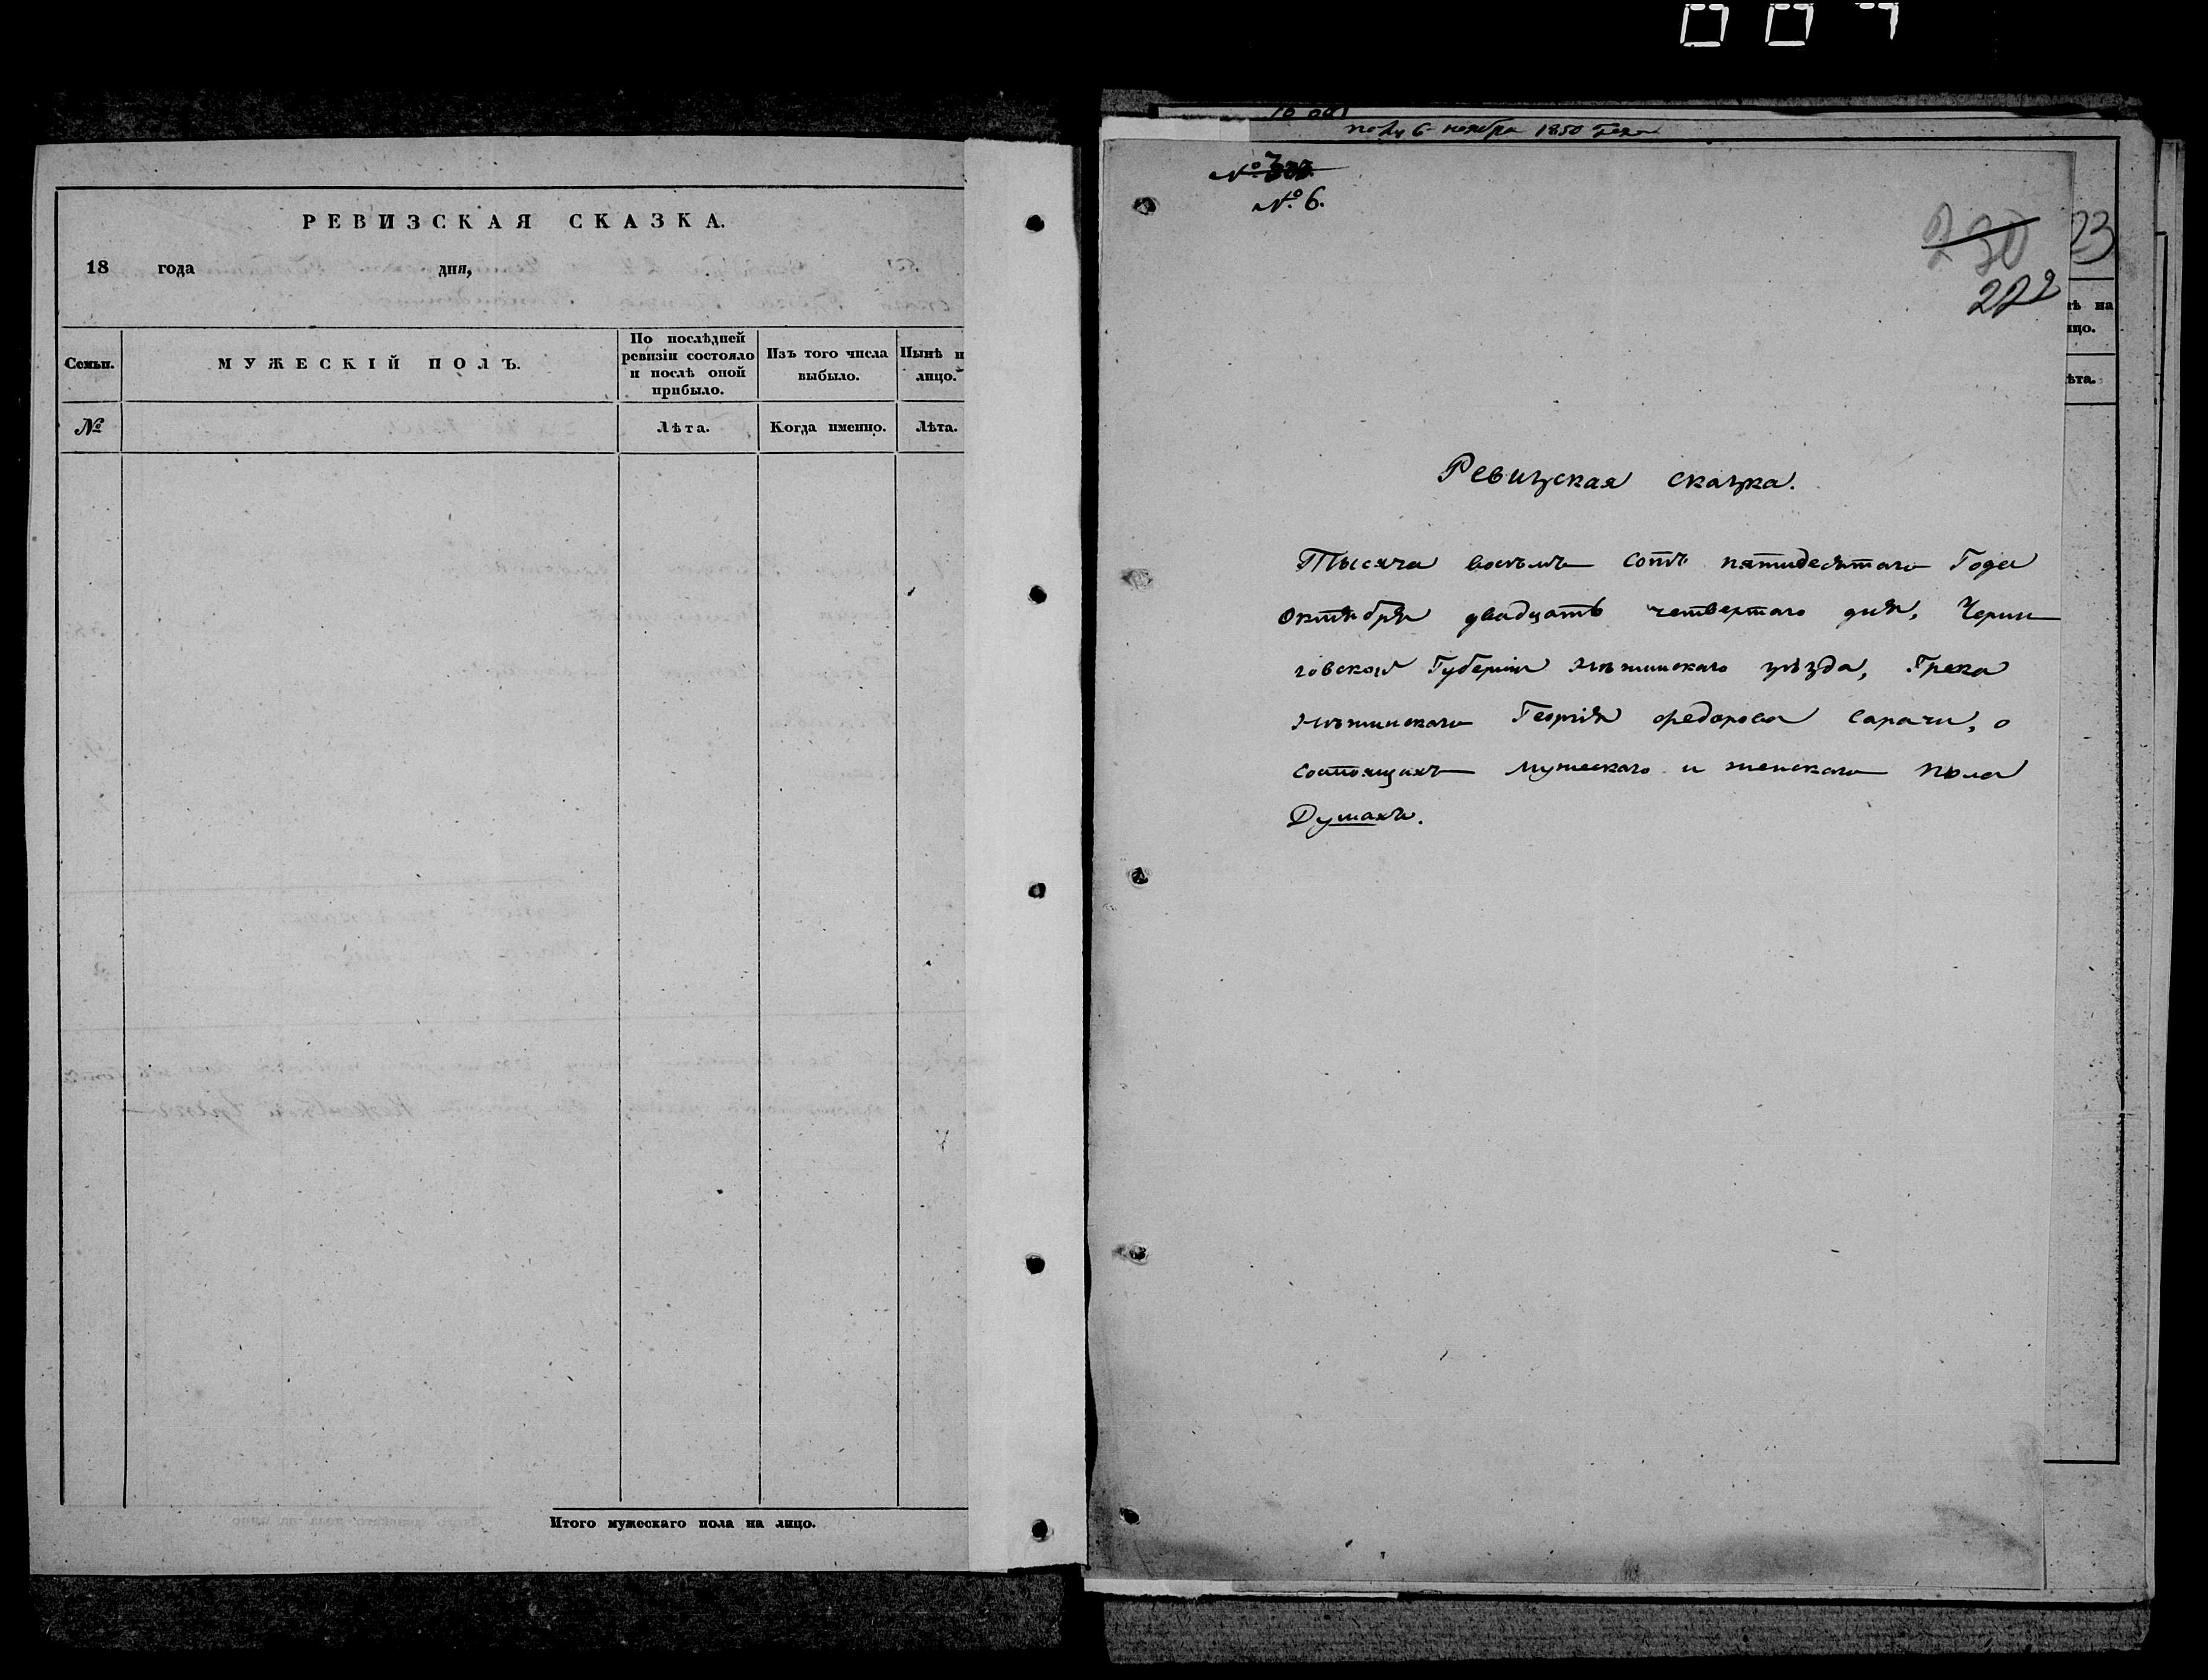 РЕВИЗСКАЯ СКАЗКА.
18 года дня,
Семьи.
МУЖЕСКІЙ ПОЛЪ.
По послѣдней
ревизіи состояло
и послѣ оной
прибыло.
Изъ того числа
выбыло.
Нынѣ н
лицо.
№
Лѣта.
Когда именно.
Лѣта.
Итого мужескаго пола на лицо.
6 ноября 1850 года
№ 6.
230
222
23
ѣ на
ицо.
ѣта.
Ревизская сказка.
Тысяча восемь сотъ пятидесятаго Года
Октября двадцать четвертаго дня, Черни
говской Губерніи Нѣжинскаго уѣзда, Грека
Нѣжинскаго Георгія Федорова Сарачи, о
состоящихъ мужескаго и женскаго пола
Душахъ.